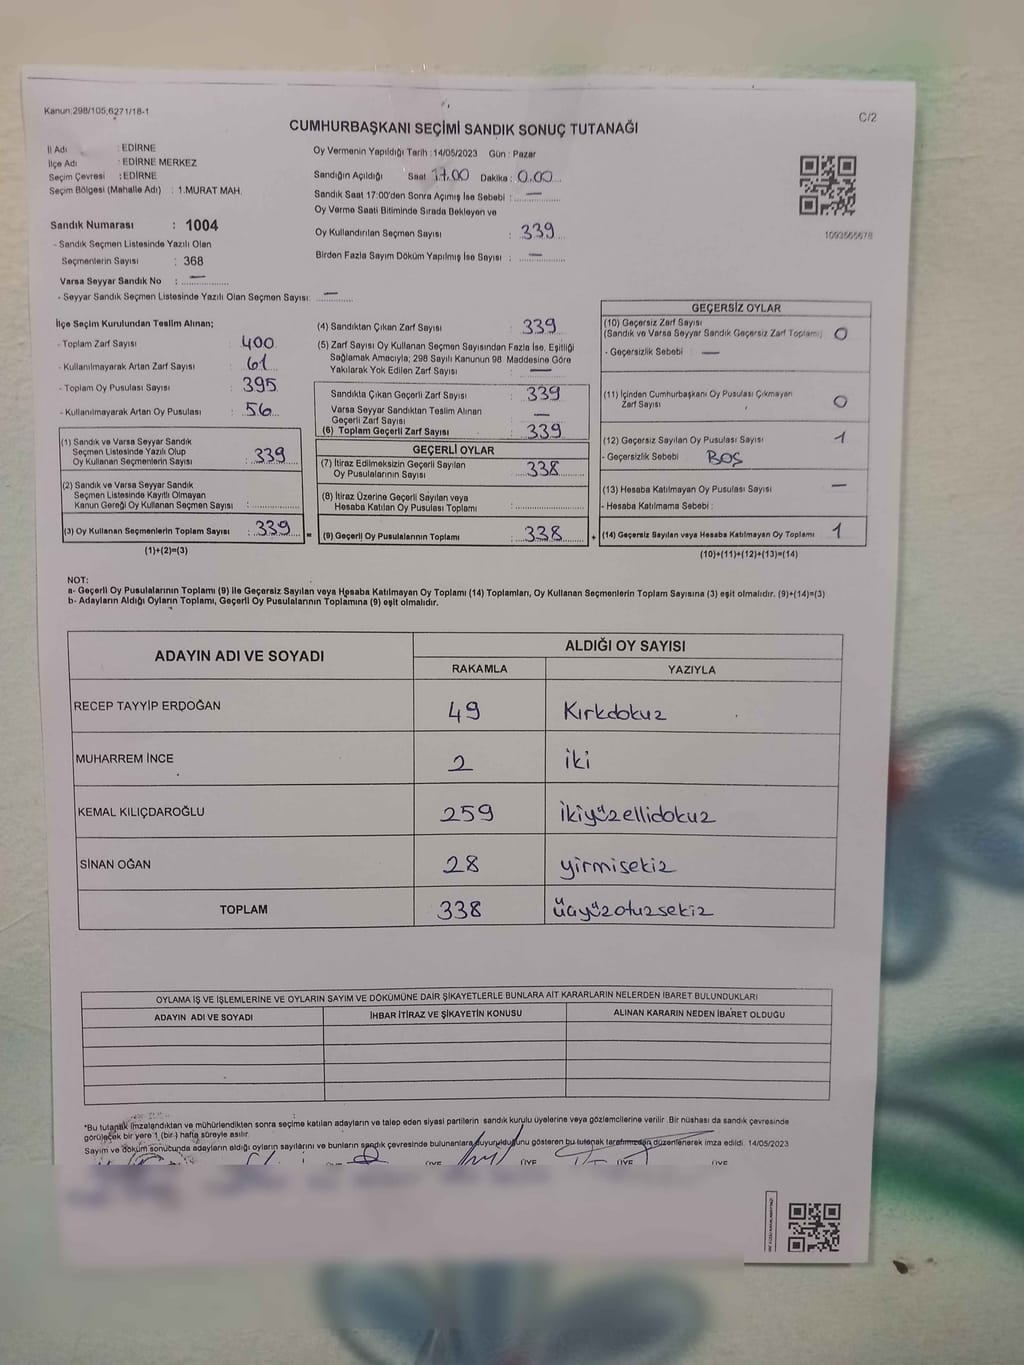 Kanun:298/105,6271/18-1
C/2
CUMHURBAŞKANI SEÇİMİ SANDIK SONUÇ TUTANAĞI
İl Adı : EDİRNE
İlçe Adı : EDİRNE MERKEZ
Seçim Çevresi : EDİRNE
Seçim Bölgesi (Mahalle Adı) : 1.MURAT MAH.
Oy Vermenin Yapıldığı Tarih : 14/05/2023 Gün : Pazar
Sandığın Açıldığı Saat 17.00 Dakika : 0.00
Sandık Saat 17:00'den Sonra Açılmış İse Sebebi : —
Oy Verme Saati Bitiminde Sırada Bekleyen ve
Oy Kullandırılan Seçmen Sayısı : 339
Birden Fazla Sayım Döküm Yapılmış İse Sayısı : —
1093565678
Sandık Numarası : 1004
- Sandık Seçmen Listesinde Yazılı Olan
Seçmenlerin Sayısı : 368
Varsa Seyyar Sandık No : —
- Seyyar Sandık Seçmen Listesinde Yazılı Olan Seçmen Sayısı: —
İlçe Seçim Kurulundan Teslim Alınan;
- Toplam Zarf Sayısı : 400
- Kullanılmayarak Artan Zarf Sayısı : 61
- Toplam Oy Pusulası Sayısı : 395
- Kullanılmayarak Artan Oy Pusulası : 56
(1) Sandık ve Varsa Seyyar Sandık
Seçmen Listesinde Yazılı Olup
Oy Kullanan Seçmenlerin Sayısı : 339
(2) Sandık ve Varsa Seyyar Sandık
Seçmen Listesinde Kayıtlı Olmayan
Kanun Gereği Oy Kullanan Seçmen Sayısı :
(3) Oy Kullanan Seçmenlerin Toplam Sayısı : 339
(1)+(2)=(3)
(4) Sandıktan Çıkan Zarf Sayısı : 339
(5) Zarf Sayısı Oy Kullanan Seçmen Sayısından Fazla İse, Eşitliği
Sağlamak Amacıyla; 298 Sayılı Kanunun 98. Maddesine Göre
Yakılarak Yok Edilen Zarf Sayısı : —
Sandıkta Çıkan Geçerli Zarf Sayısı : 339
Varsa Seyyar Sandıktan Teslim Alınan
Geçerli Zarf Sayısı : —
(6) Toplam Geçerli Zarf Sayısı : 339
GEÇERLİ OYLAR
(7) İtiraz Edilmeksizin Geçerli Sayılan
Oy Pusulalarının Sayısı : 338
(8) İtiraz Üzerine Geçerli Sayılan veya
Hesaba Katılan Oy Pusulası Toplamı :
= (9) Geçerli Oy Pusulalarının Toplamı : 338
GEÇERSİZ OYLAR
(10) Geçersiz Zarf Sayısı
(Sandık ve Varsa Seyyar Sandık Geçersiz Zarf Toplamı) 0
- Geçersizlik Sebebi : —
(11) İçinden Cumhurbaşkanı Oy Pusulası Çıkmayan
Zarf Sayısı 0
(12) Geçersiz Sayılan Oy Pusulası Sayısı 1
- Geçersizlik Sebebi : BOŞ
(13) Hesaba Katılmayan Oy Pusulası Sayısı —
- Hesaba Katılmama Sebebi :
+ (14) Geçersiz Sayılan veya Hesaba Katılmayan Oy Toplamı 1
(10)+(11)+(12)+(13)=(14)
NOT:
a- Geçerli Oy Pusulalarının Toplamı (9) ile Geçersiz Sayılan veya Hesaba Katılmayan Oy Toplamı (14) Toplamları, Oy Kullanan Seçmenlerin Toplam Sayısına (3) eşit olmalıdır. (9)+(14)=(3)
b- Adayların Aldığı Oyların Toplamı, Geçerli Oy Pusulalarının Toplamına (9) eşit olmalıdır.
ADAYIN ADI VE SOYADI ALDIĞI OY SAYISI
RAKAMLA YAZIYLA
RECEP TAYYİP ERDOĞAN 49 Kırkdokuz
MUHARREM İNCE 2 iki
KEMAL KILIÇDAROĞLU 259 ikiyüzellidokuz
SİNAN OĞAN 28 yirmisekiz
TOPLAM 338 üçyüzotuzsekiz
OYLAMA İŞ VE İŞLEMLERİNE VE OYLARIN SAYIM VE DÖKÜMÜNE DAİR ŞİKAYETLERLE BUNLARA AİT KARARLARIN NELERDEN İBARET BULUNDUKLARI
ADAYIN ADI VE SOYADI İHBAR İTİRAZ VE ŞİKAYETİN KONUSU ALINAN KARARIN NEDEN İBARET OLDUĞU
*Bu tutanak imzalandıktan ve mühürlendikten sonra seçime katılan adayların ve talep eden siyasi partilerin sandık kurulu üyelerine veya gözlemcilerine verilir. Bir nüshası da sandık çevresinde
görülecek bir yere 1 (bir) hafta süreyle asılır.
Sayım ve döküm sonucunda adayların aldığı oyların sayılarını ve bunların sandık çevresinde bulunanlara duyurulduğunu gösteren bu tutanak tarafımızdan düzenlenerek imza edildi. 14/05/2023
ÜYE ÜYE ÜYE ÜYE